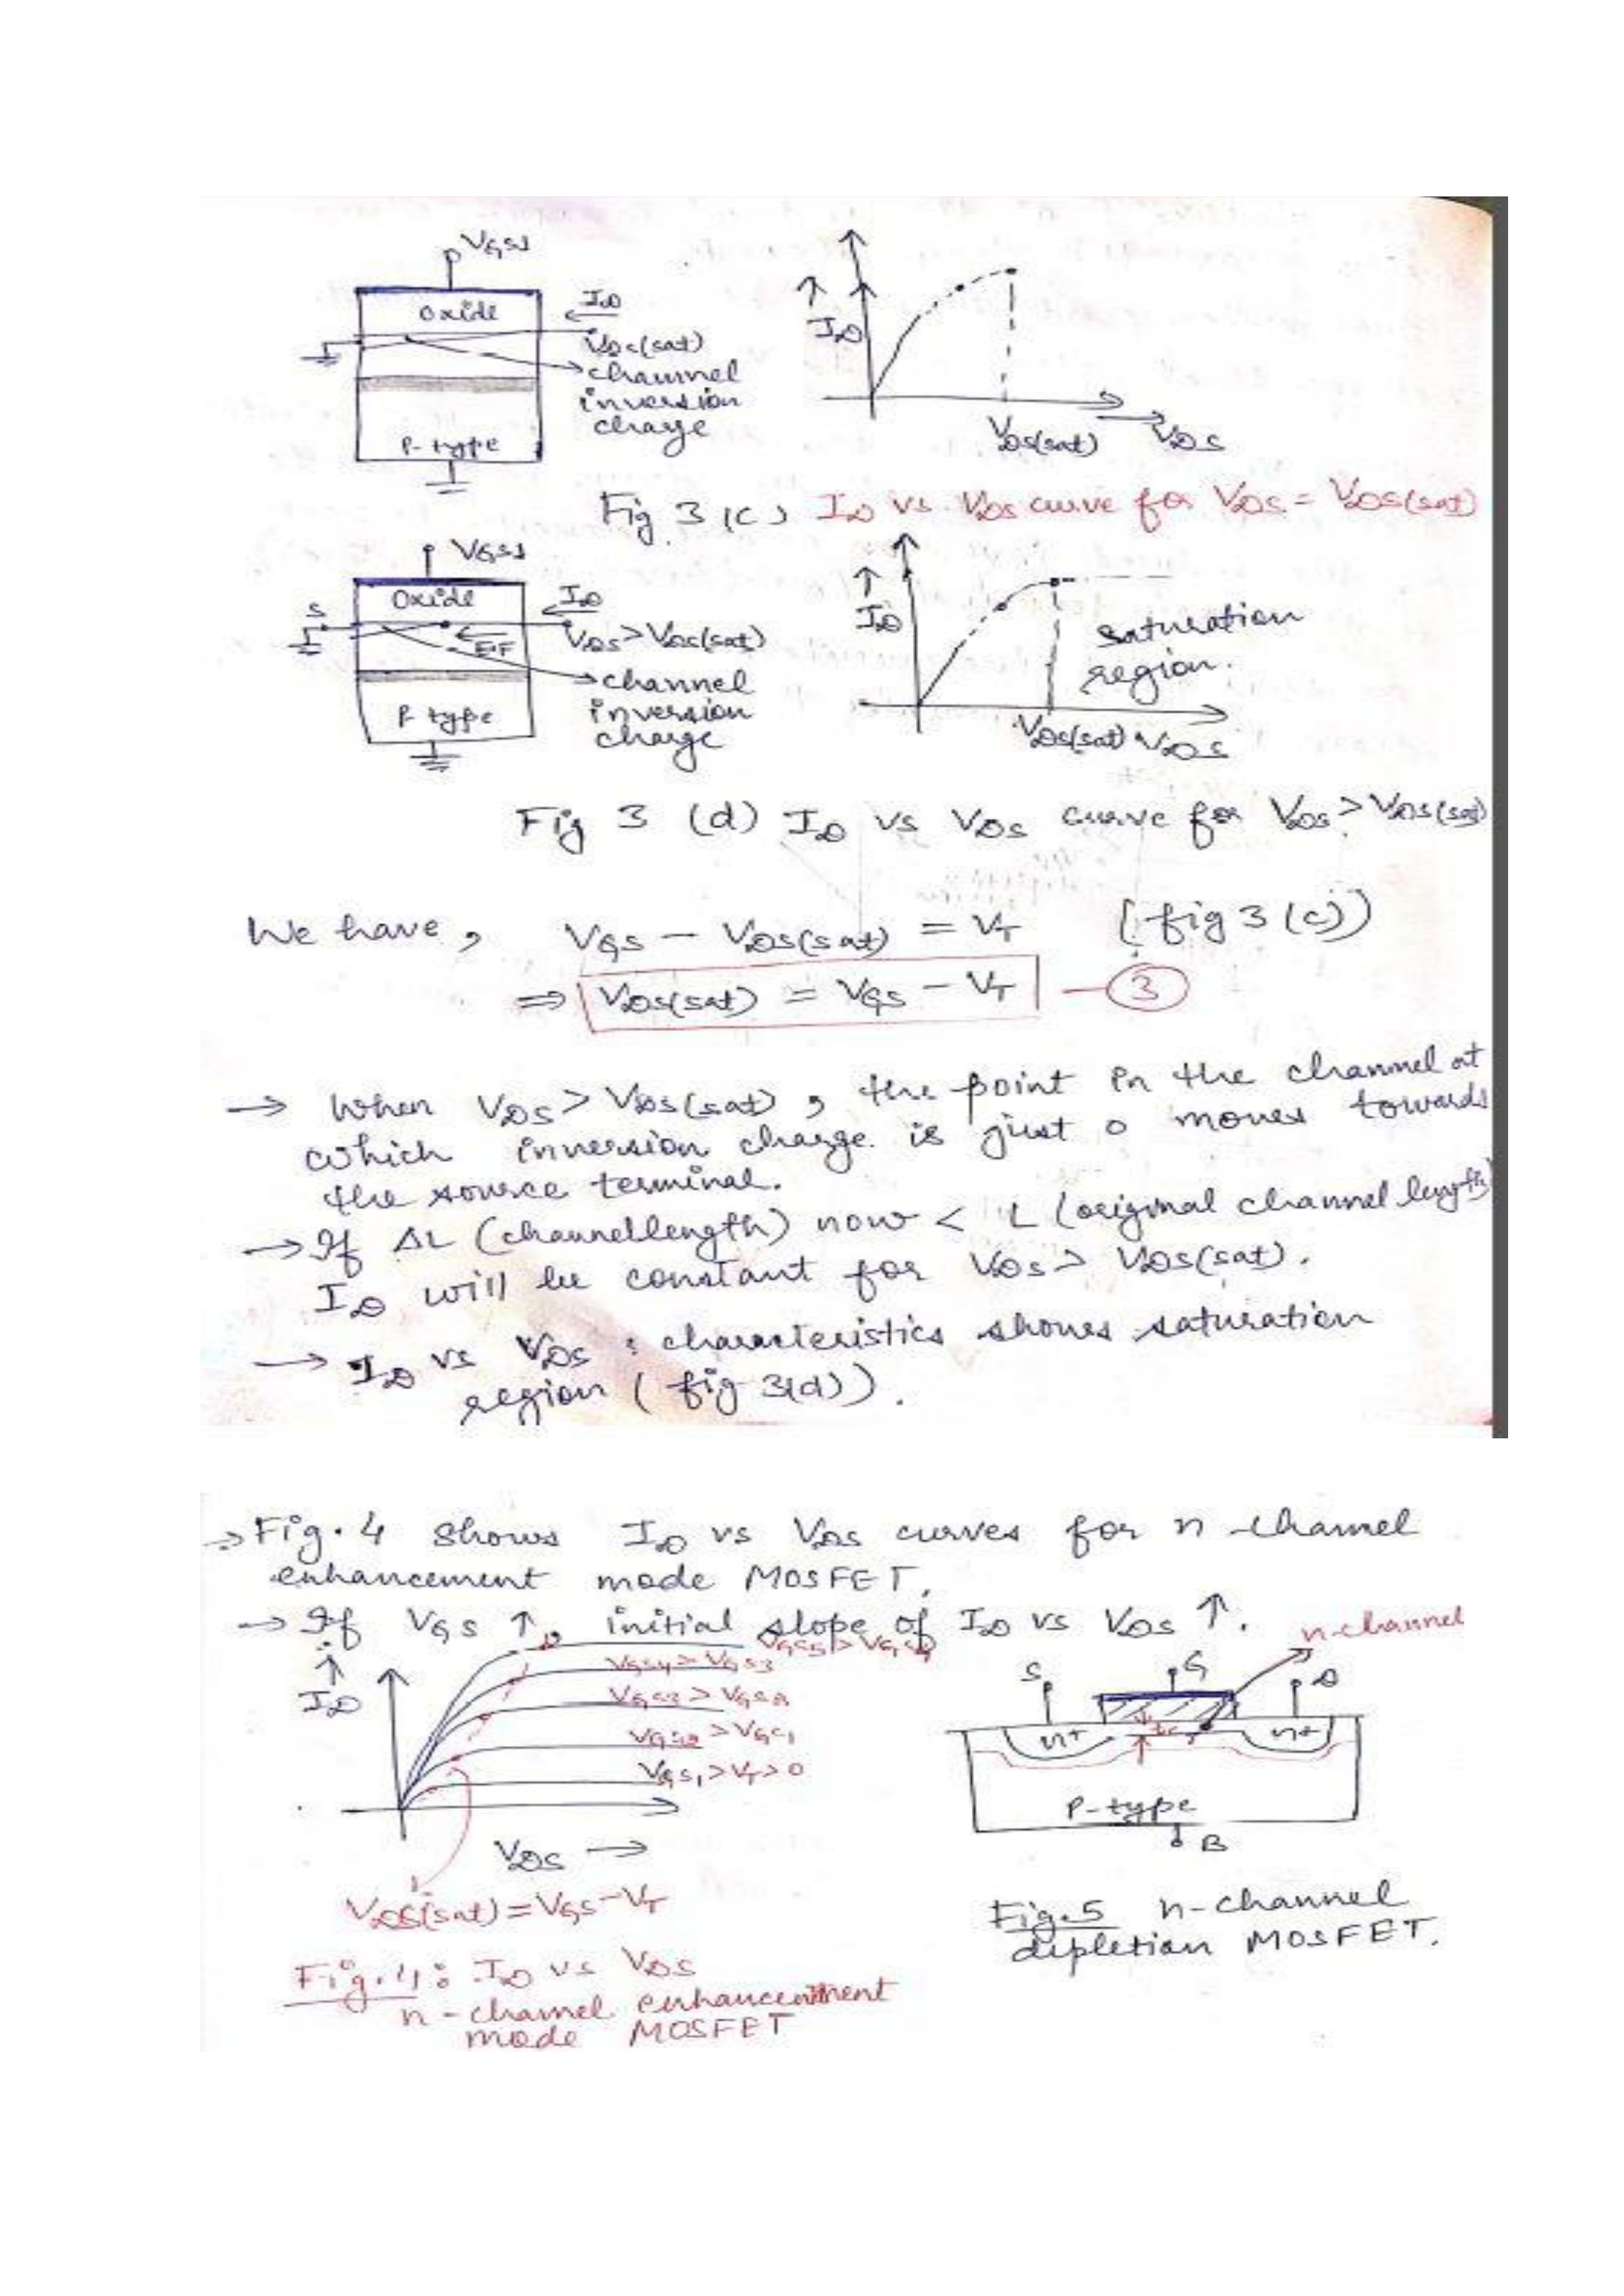 VGS1
Oxide
ID
VDS(sat)
channel
inversion
charge
P-type
↑
ID
VDS(sat) → VDS
Fig 3 (c) ID vs VDS curve for VDS = VDS(sat)
VGS1
Oxide
S
ID
VDS > VDS(sat)
E.F
channel
inversion
charge
P type
↑
ID
saturation
region.
VDS(sat) VDS
Fig 3 (d) ID vs VDS curve for VDS > VDS(sat)
We have, VGS - VDS(sat) = VT (fig 3 (c))
⇒ VDS(sat) = VGS - VT — 3
→ When VDS > VDS(sat), the point in the channel at
which inversion charge is just 0 moves towards
the source terminal.
→ If ΔL (channel length) now < L (original channel length)
ID will be constant for VDS > VDS(sat).
→ ID vs VDS characteristics shows saturation
region (fig 3(d)).
→ Fig. 4 shows ID vs VDS curves for n-channel
enhancement mode MOSFET.
→ If VGS ↑, initial slope of ID vs VDS ↑.
↑
ID
VGS5 > VGS4
VGS4 > VGS3
VGS3 > VGS2
VGS2 > VGS1
VGS1 > VT > 0
VDS →
VDS(sat) = VGS - VT
Fig. 4: ID vs VDS
n-channel enhancement
mode MOSFET
n-channel
S
G
D
n+
tc
n+
P-type
B
Fig. 5 n-channel
depletion MOSFET.